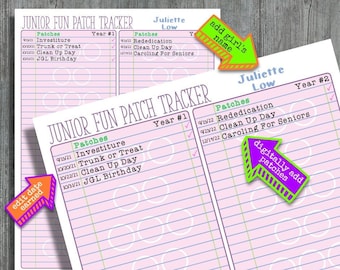 JUNIOR FUN PATCH TRACKER
Juliette
Low
Patches Year #1
Investiture
Trunk or Treat
Clean Up Day
JGL Birthday
Patches Year #2
Rededication
Clean Up Day
Caroling For Seniors
add girl's
name
JUNIOR FUN PATCH TRACKER
Juliette
Low
Patches Year #1
Investiture
Trunk or Treat
Clean Up Day
JGL Birthday
Patches Year #2
Rededication
Clean Up Day
Caroling For Seniors
edit date
earned
digitally add
patches